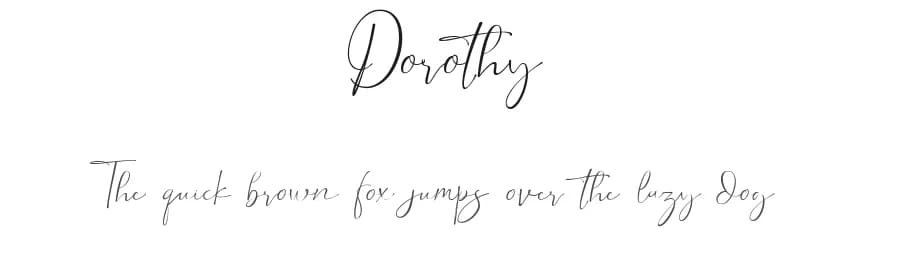 Dorothy
The quick brown fox jumps over the lazy dog